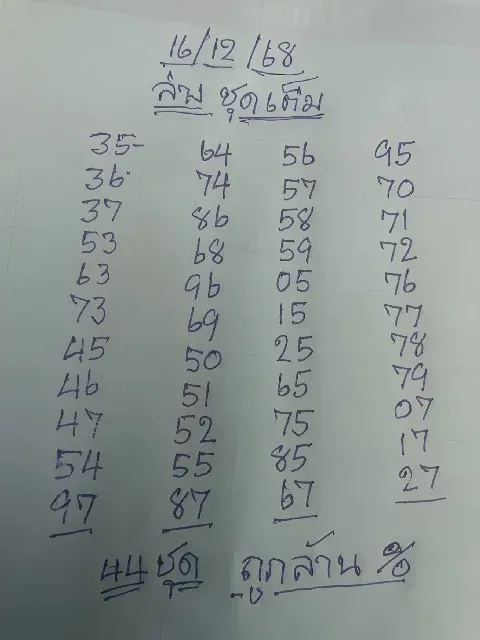 16/12/68
ล่าง ชุดเต็ม
35- 64 56 95
36. 74 57 70
37 86 58 71
53 68 59 72
63 96 05 76
73 69 15 77
45 50 25 78
46 51 65 79
47 52 75 07
54 55 85 17
97 87 67 27
44 ชุด ถูกล้าน %